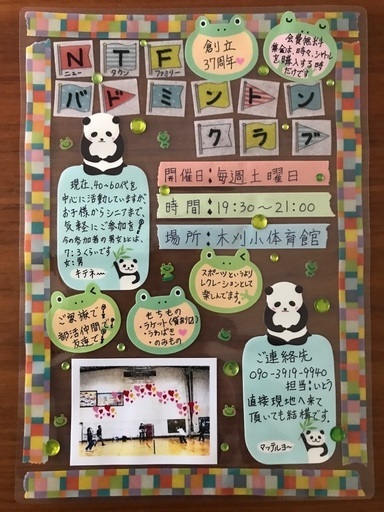 NTF
ニュー タウン ファミリー
創立
37周年
会費無料
集金は時々、シャトル
を購入する時
だけです
バドミントン
クラブ
開催日:毎週土曜日
時間:19:30～21:00
場所:木刈小体育館
現在、40~60代を
中心に活動していますが、
お子様からシニアまで、
気軽にご参加を
今の参加者の男女比は、
7:3くらいです。
女:男
キテネ～
スポーツというより
レクレーションとして
楽しんでます。
ご家族で!
部活仲間で!
友達で!
もちもの
・ラケット(貸出可)
・うわばき
・のみもの
ご連絡先
090-3919-9940
担当:いとう
直接現地へ来て
頂いても結構です。
マッテルヨ～